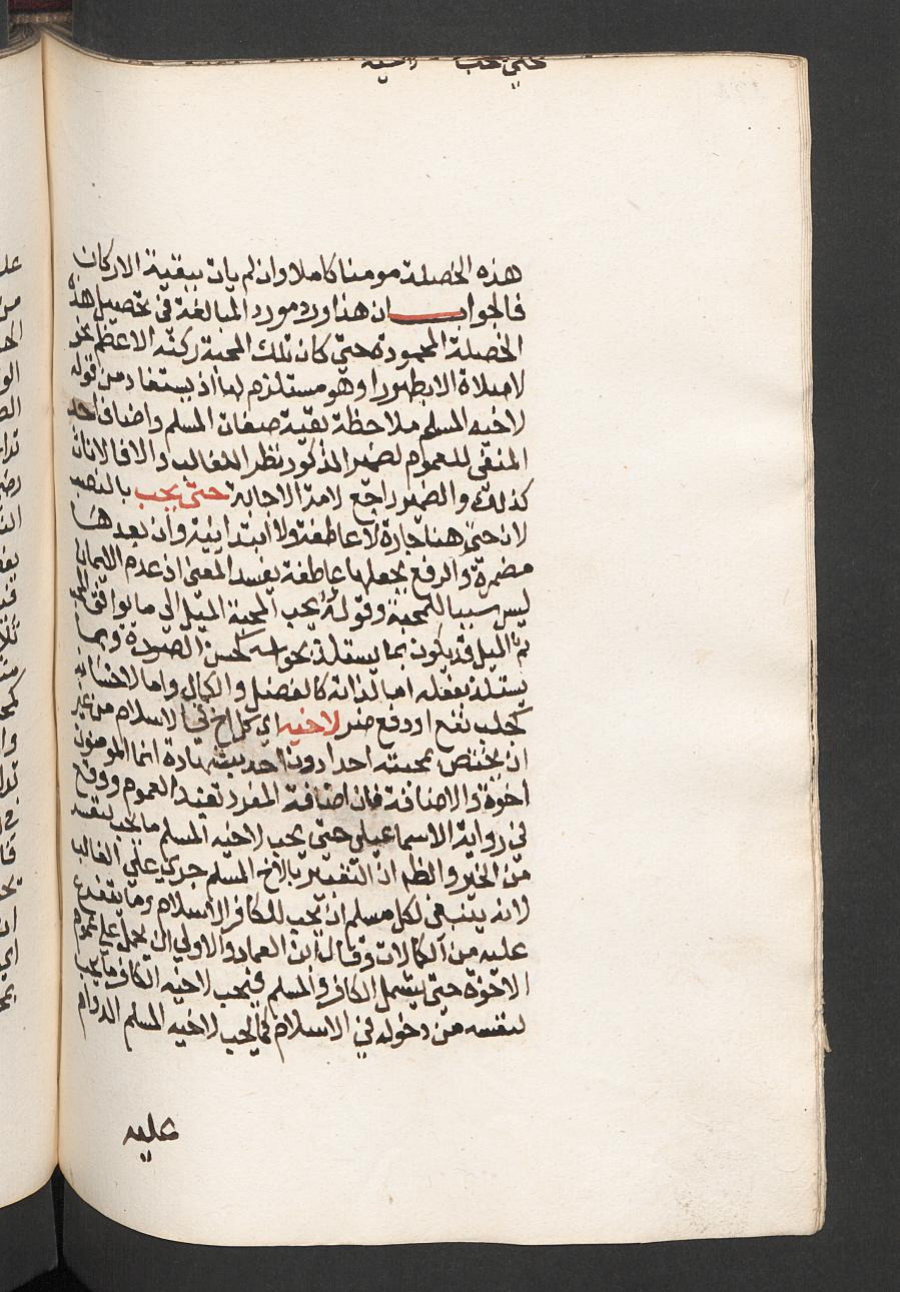 حتى يحب لاخيه
هذه الخصلة مومنا كاملا وان لم يات ببقية الاركان
فالجواب ان هذا ورد مورد المبالغة في تحصيل هذه
الخصلة المحمودة حتى كان تلك المحبة ركنه الاعظم نحو
لا صلاة الا بطهور او هو مستلزم لها اذ يستفاد من قوله
لاخيه المسلم ملاحظة بقية صفات المسلم واضاف احد
المنفى للعموم لضمير المذكور نظر اللغالب والا فالاناث
كذلك والضمير راجع لامة الاجابة حتى يحب بالنصب
لان حتى هنا جارة لا عاطفة ولا ابتدايية وان بعدها
مضمرة والرفع بجعلها عاطفة يفسد المعنى اذ عدم الايمان
ليس سببا للمحبة وقوله يحب المحبة الميل الي ما يوافق
ثم الميل قد يكون بما يستلذ بحواسه كحسن الصورة وبما
يستلذ بفعله اما لذاته كالفضل والكمال واما لاحسانه
كجلب نفع او دفع ضر لاخيه اي كل اخ في الاسلام من غير
ان يختص بمحبته احدا دون احد بشهادة انما المومنون
اخوة والاضافة فان اضافة المفرد تفيد العموم ووقع
في رواية الاسماعيلي حتى يحب لاخيه المسلم ما يحب لنفسه
من الخير والظم ان التعبير بالاخ المسلم جري علي الغالب
لانه ينبغي لكل مسلم ان يحب للكافر الاسلام وما يتفرع
عليه من الكمالات وقال ابن العماد والاولي ان يحمل علي عموم
الاخوة حتى يشمل الكافر والمسلم فيحب لاخيه الكافر ما يحب
لنفسه من دخوله في الاسلام كما يحب لاخيه المسلم الدوام
عليه